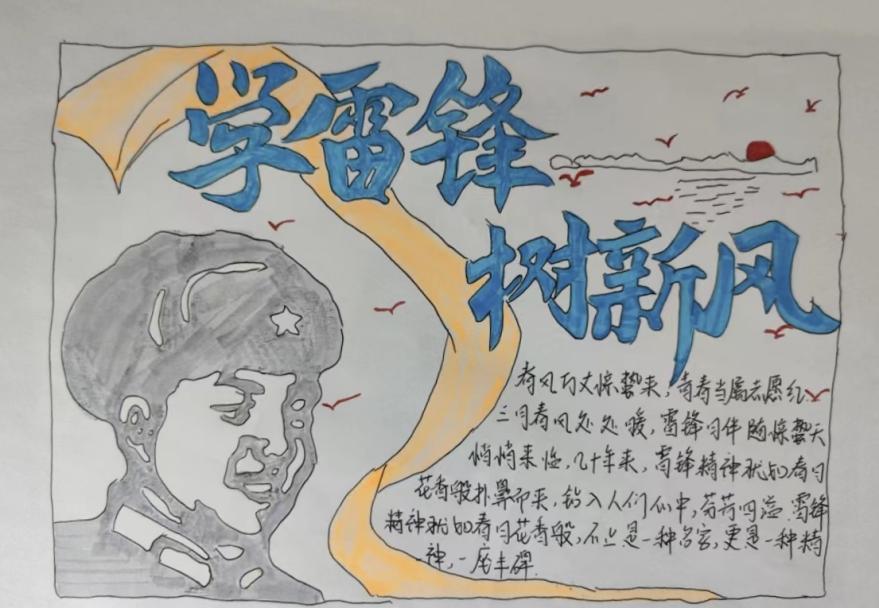 学雷锋
树新风
春风万丈惊蛰来,青春当属志愿红
三月春风处处暖,雷锋月伴随惊蛰天
悄悄来临,几十年来,雷锋精神犹如春日
花香般扑鼻而来,钻入人们心中,芬芳四溢.雷锋
精神犹如春日花香般,不止是一种名言,更是一种精
神,一座丰碑.